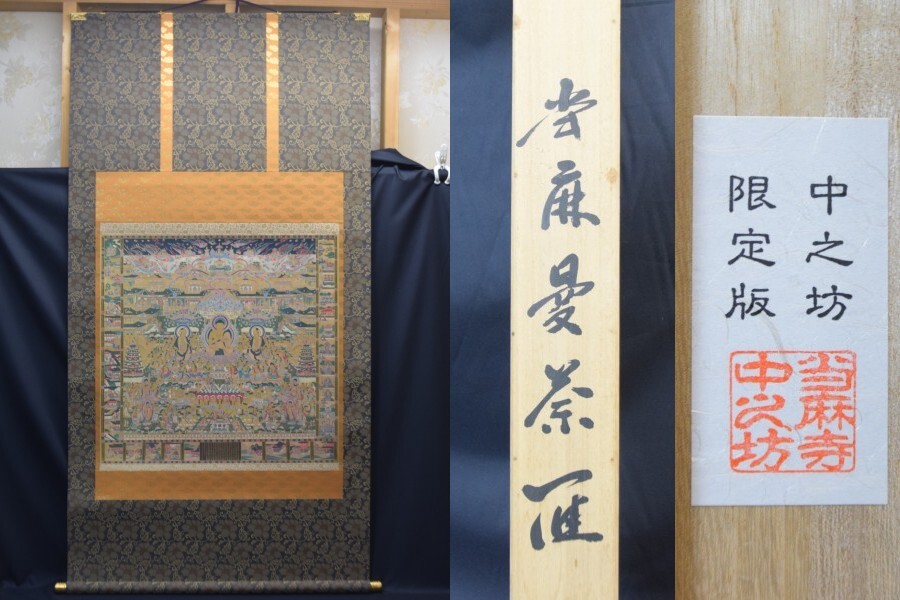 当麻曼荼羅
中之坊
限定版
当麻寺
中之坊